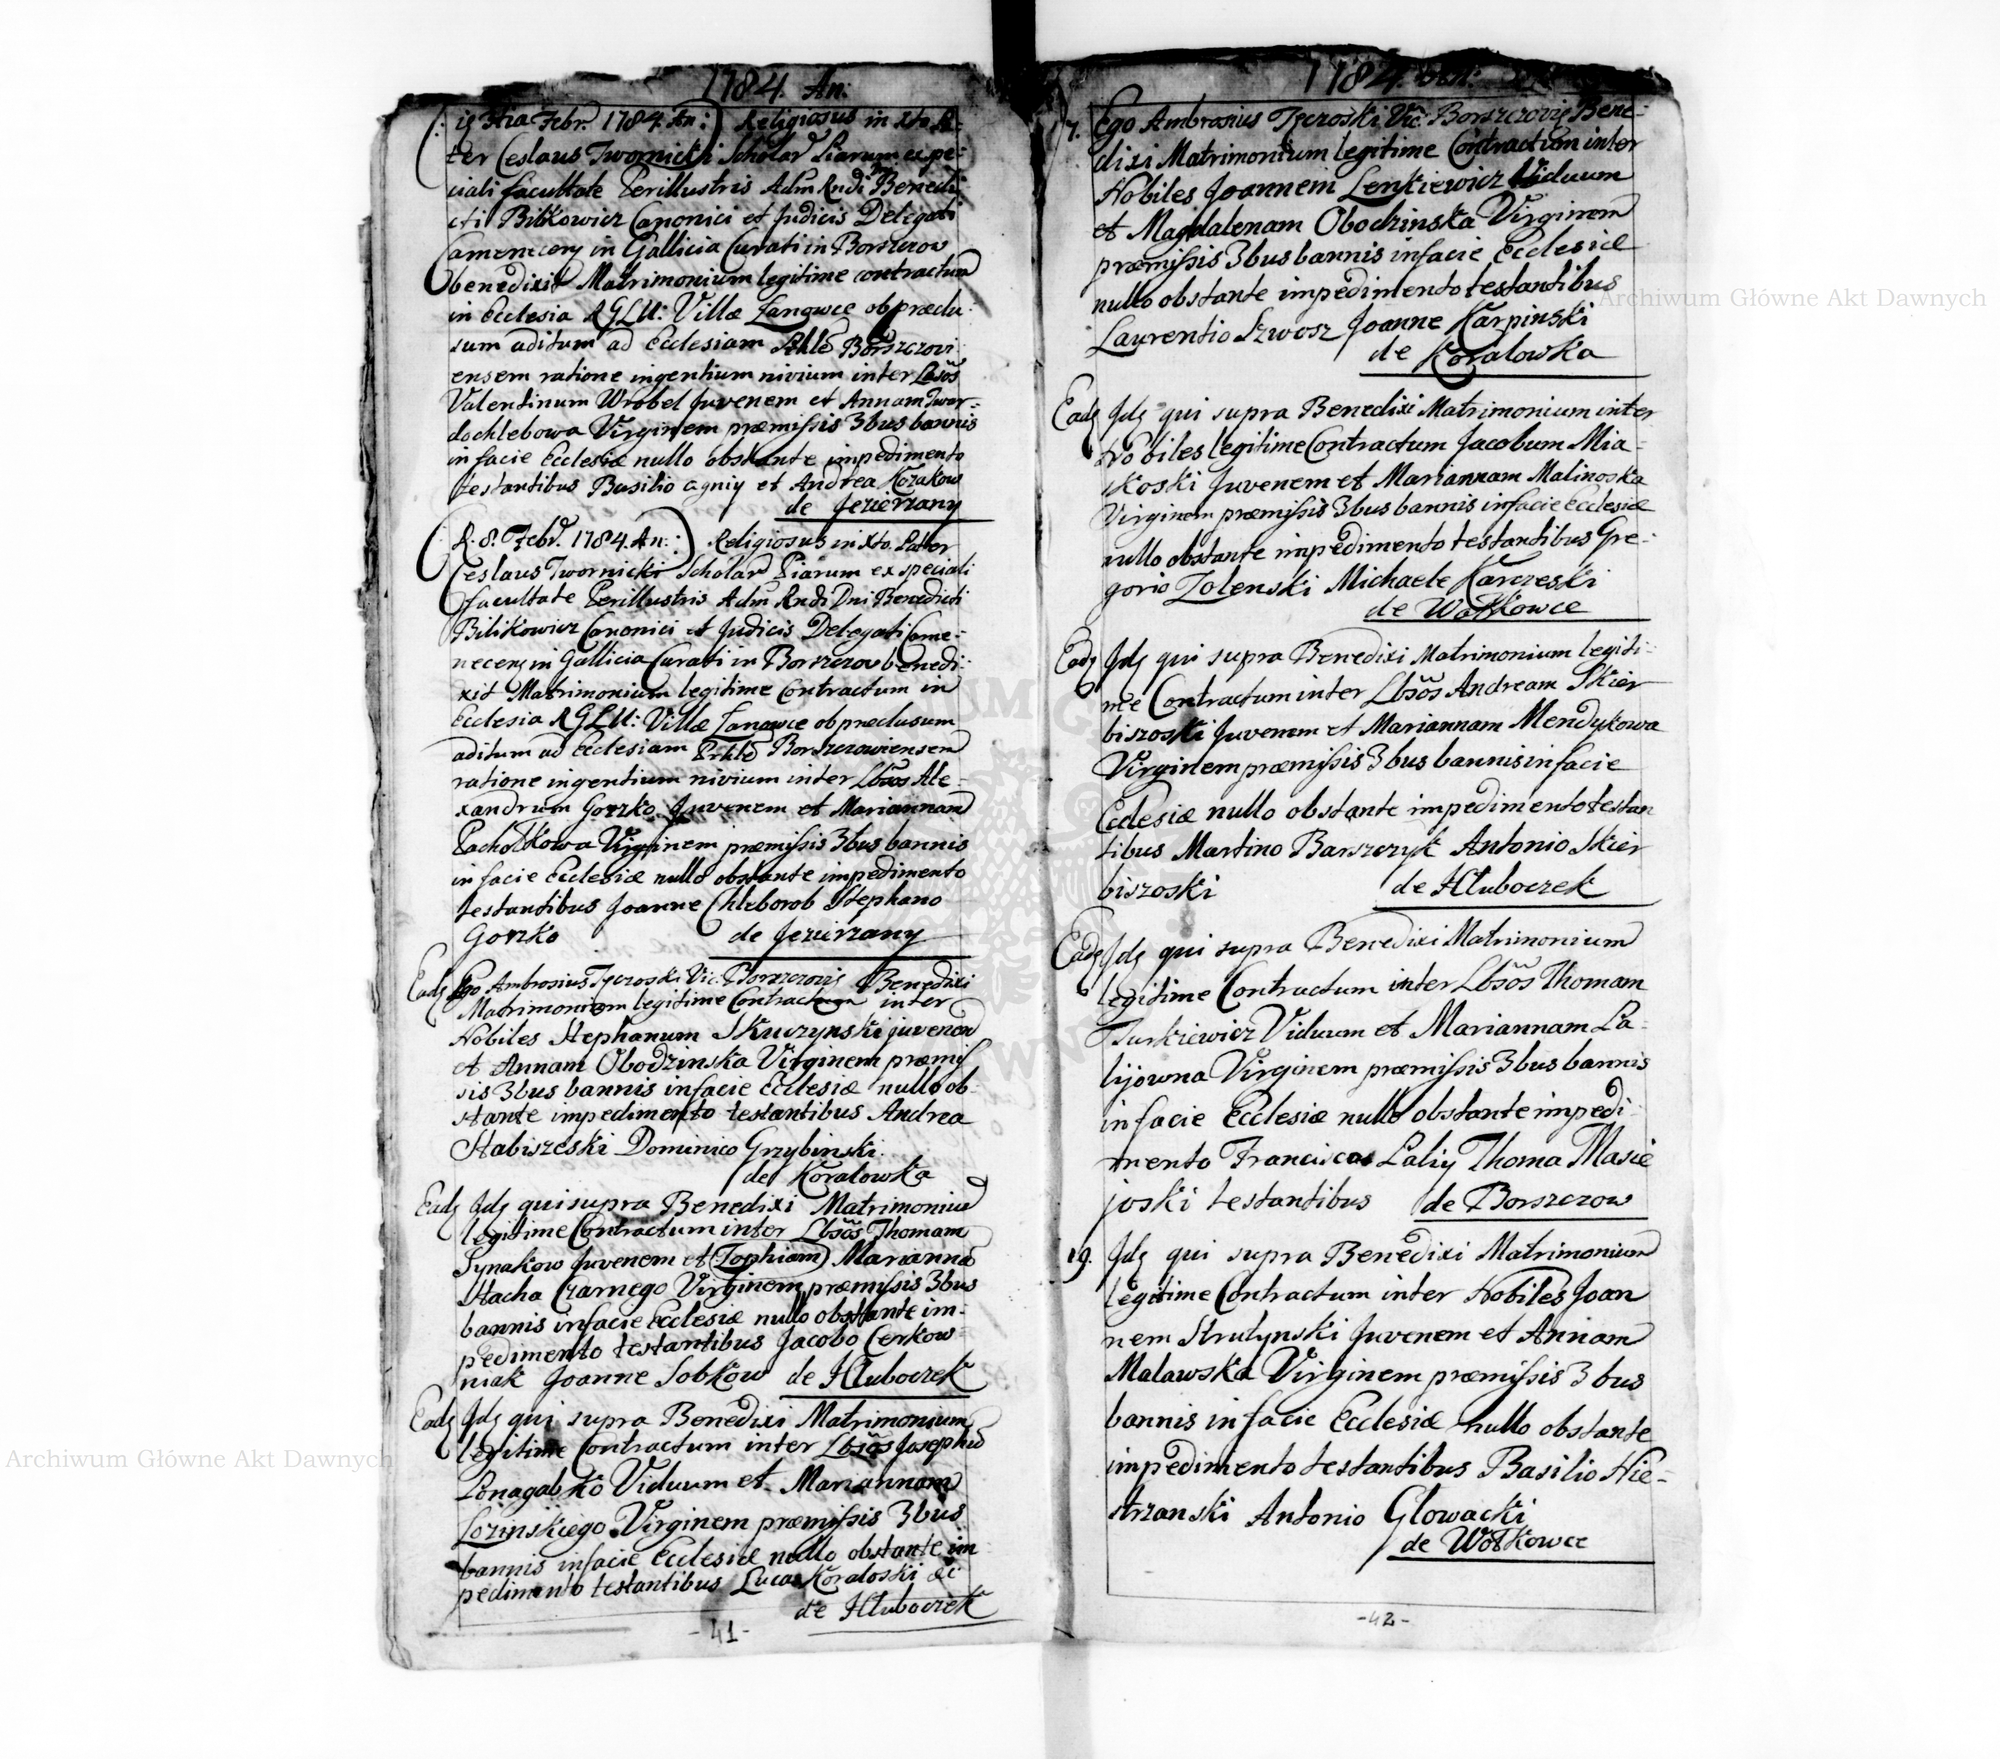 1784. An:
Febr. 1784. An: Religiosus in Xto Pa-
ter Ceslaus Twornicki Scholar Piarum ex spe-
ciali facultate Perillustris Adm Rndi Dni Benedi-
cti Bilikowicz Canonici et Judicis Delegati
Camenecens in Gallicia Curati in Borszczow
benedixit Matrimonium legitime contractum
in Ecclesia RGLU: Villæ Lanowce ob præclu-
sum aditum ad Ecclesiam Pchlē Borszczovi-
ensem ratione ingentium nivium inter Lbsōs
Valentinum Wrobel Juvenem et Annam Twar-
dochlebowa Virginem præmissis 3bus bannis
in facie Ecclesiæ nullo obstante impedimento
testantibus Basilio et Andrea Kozakow
de Jezierzany
R. 8. Febr. 1784. An: Religiosus in Xto Pater
Ceslaus Twornicki Scholar Piarum ex speciali
facultate Perillustris Adm Rndi Dni Benedicti
Bilikowicz Canonici et Judicis Delegati Came-
necens in Gallicia Curati in Borszczow benedi-
xit Matrimonium legitime Contractum in
Ecclesia RGLU: Villæ Lanowce ob præclusum
aditum ad Ecclesiam Pchlē Borszczowiensem
ratione ingentium nivium inter Lbsōs Ale-
xandrum Gorzko Juvenem et Mariannam
Pachołkowa Virginem præmissis 3bus bannis
in facie Ecclesiæ nullo obstante impedimento
testantibus Joanne Chleborob Stephano
Gorzko de Jezierzany
Eadē Ego Ambrosius Tyczoski Vic. Borszczovis Benedixi
Matrimonium legitime Contractum inter
Nobiles Stephanum Skuczynski juvenem
et Annam Obodzinska Virginem præmis
sis 3bus bannis in facie Ecclesiæ nullo ob-
stante impedimento testantibus Andrea
Stabiszeski Dominico Grzybinski.
de Koralowka
Eadē Idē qui supra Benedixi Matrimoniū
legitime Contractum inter Lbsōs Thomam
Synakow Juvenem et (Zophiam) Mariannā
Stacha Czarnego Virginem præmissis 3bus
bannis in facie Ecclesiæ nullo obstante im-
pedimento testantibus Jacobo Cerkow-
niak Joanne Sobkow de Hłuboczek
Eadē Idē qui supra Benedixi Matrimonium
legitime Contractum inter Lbsōs Josephū
Lonagabko Viduum et Mariannam
Lozinskiego Virginem præmissis 3bus
bannis in facie Ecclesiæ nullo obstante im
pedimento testantibus Lucas Koraloski &c
de Hłuboczek
-41-
1784. An:
7. Ego Ambrosius Tyczoski Vic. Borszczovis Bene-
dixi Matrimonium legitime Contractum inter
Nobiles Joannem Lenkiewicz Viduum
et Magdalenam Obodzinska Virginem
præmissis 3bus bannis in facie Ecclesiæ
nullo obstante impedimento testantibus
Laurentio Szwosz Joanne Karpinski
de Koralowka
Eadē Idē qui supra Benedixi Matrimonium inter
Nobiles legitime Contractum Jacobum Mia-
skoski Juvenem et Mariannam Malinoska
Virginem præmissis 3bus bannis in facie Ecclesiæ
nullo obstante impedimento testantibus Gre-
gorio Zolenski Michaele Karczeski
de Wołkowce
Eadē Idē qui supra Benedixi Matrimonium legiti-
me Contractum inter Lbsōs Andream Skier
biszoski Juvenem et Mariannam Mendykowa
Virginem præmissis 3bus bannis in facie
Ecclesiæ nullo obstante impedimento testan
tibus Martino Barszczyk Antonio Skier
biszoski de Hłuboczek
Eadē Idē qui supra Benedixi Matrimonium
legitime Contractum inter Lbsōs Thomam
Turkiewicz Viduum et Mariannam La-
lijowna Virginem præmissis 3bus bannis
in facie Ecclesiæ nullo obstante impedi-
mento Francisco Laliy Thoma Masie
joski testantibus de Borszczow
19. Idē qui supra Benedixi Matrimonium
legitime Contractum inter Nobiles Joan
nem Strutynski Juvenem et Annam
Malawska Virginem præmissis 3bus
bannis in facie Ecclesiæ nullo obstante
impedimento testantibus Basilio Hie-
strzanski Antonio Glowacki
de Wołkowce
-42-
Archiwum Główne Akt Dawnych
Archiwum Główne Akt Dawnych